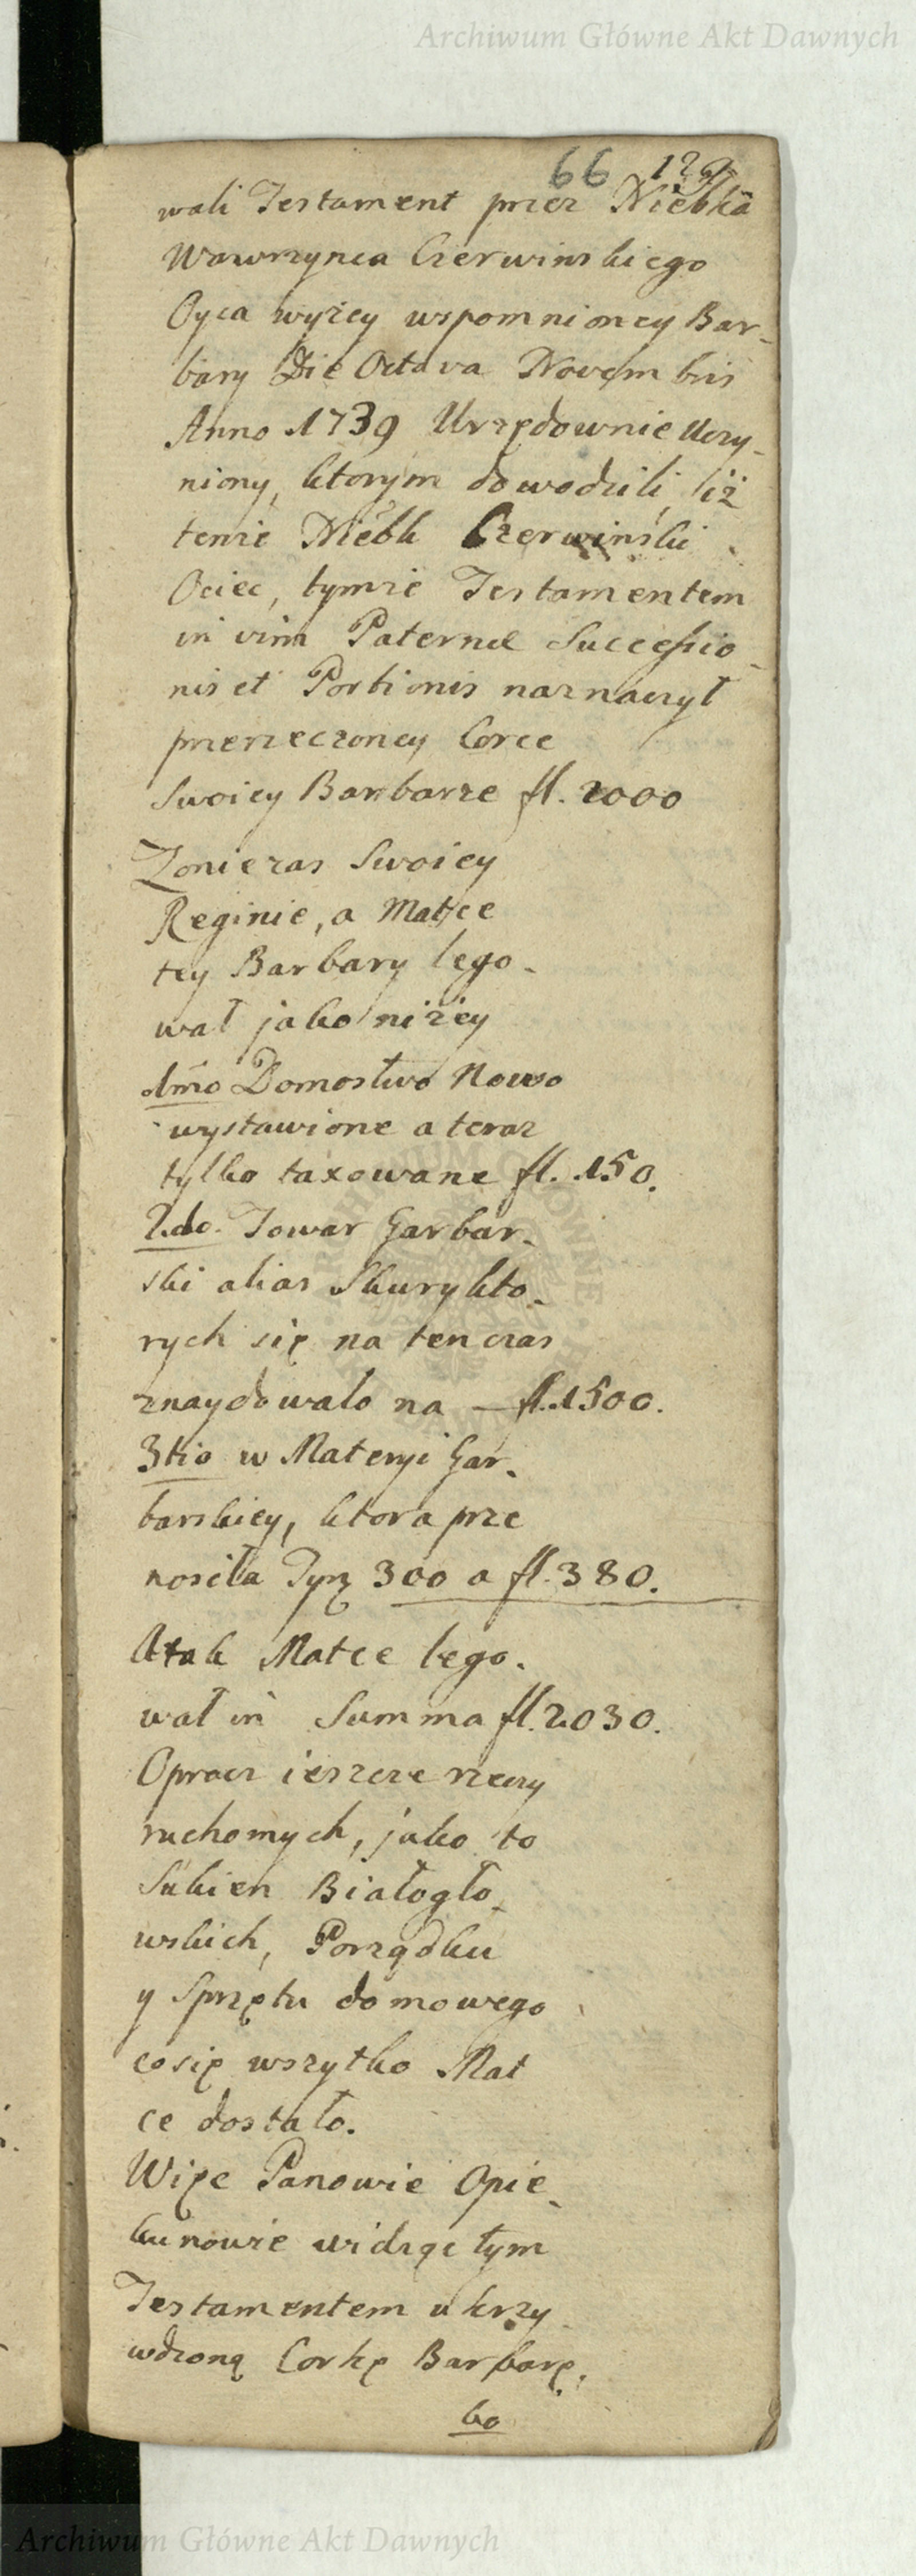 Archiwum Główne Akt Dawnych
66 129
wali Testament przez Niebka
Wawrzynca Czerwinskiego
Oyca wyzey wspomnioney Bar-
bary Die Octava Novembris
Anno 1739 Urzędownie Uczy-
niony, ktorym dowodzili, iż
tenze Niebk Czerwinski
Ociec, tymze Testamentem
in vim Paternæ Successio-
nis et Portionis naznaczył
przerzeczoney Corce
Swoiey Barbarze fl. 2000
Zonie zas Swoiey
Reginie, a Matce
tey Barbary lego-
wał jako niżey
1mo Domostwo Nowo
wystawione a teraz
tylko taxowane fl. 150.
2do. Towar Garbar-
ski alias Skury kto-
rych się na ten czas
znaydowało na — fl. 1500.
3tio w Materyi Gar-
barskiey, ktora prze
nosiła Tynf 300 a fl. 380.
A tak Matce lego-
wał in Summa fl. 2030.
Oprocz ieszcze rzeczy
ruchomych, jako to
Sukien Białogło-
wskich, Porządku
y Sprzętu domowego
co się wszytko Mat
ce dostało.
Więc Panowie Opie-
kunowie widząc tym
Testamentem ukrzy
wdzoną Corkę Barbarę,
bo
Archiwum Główne Akt Dawnych